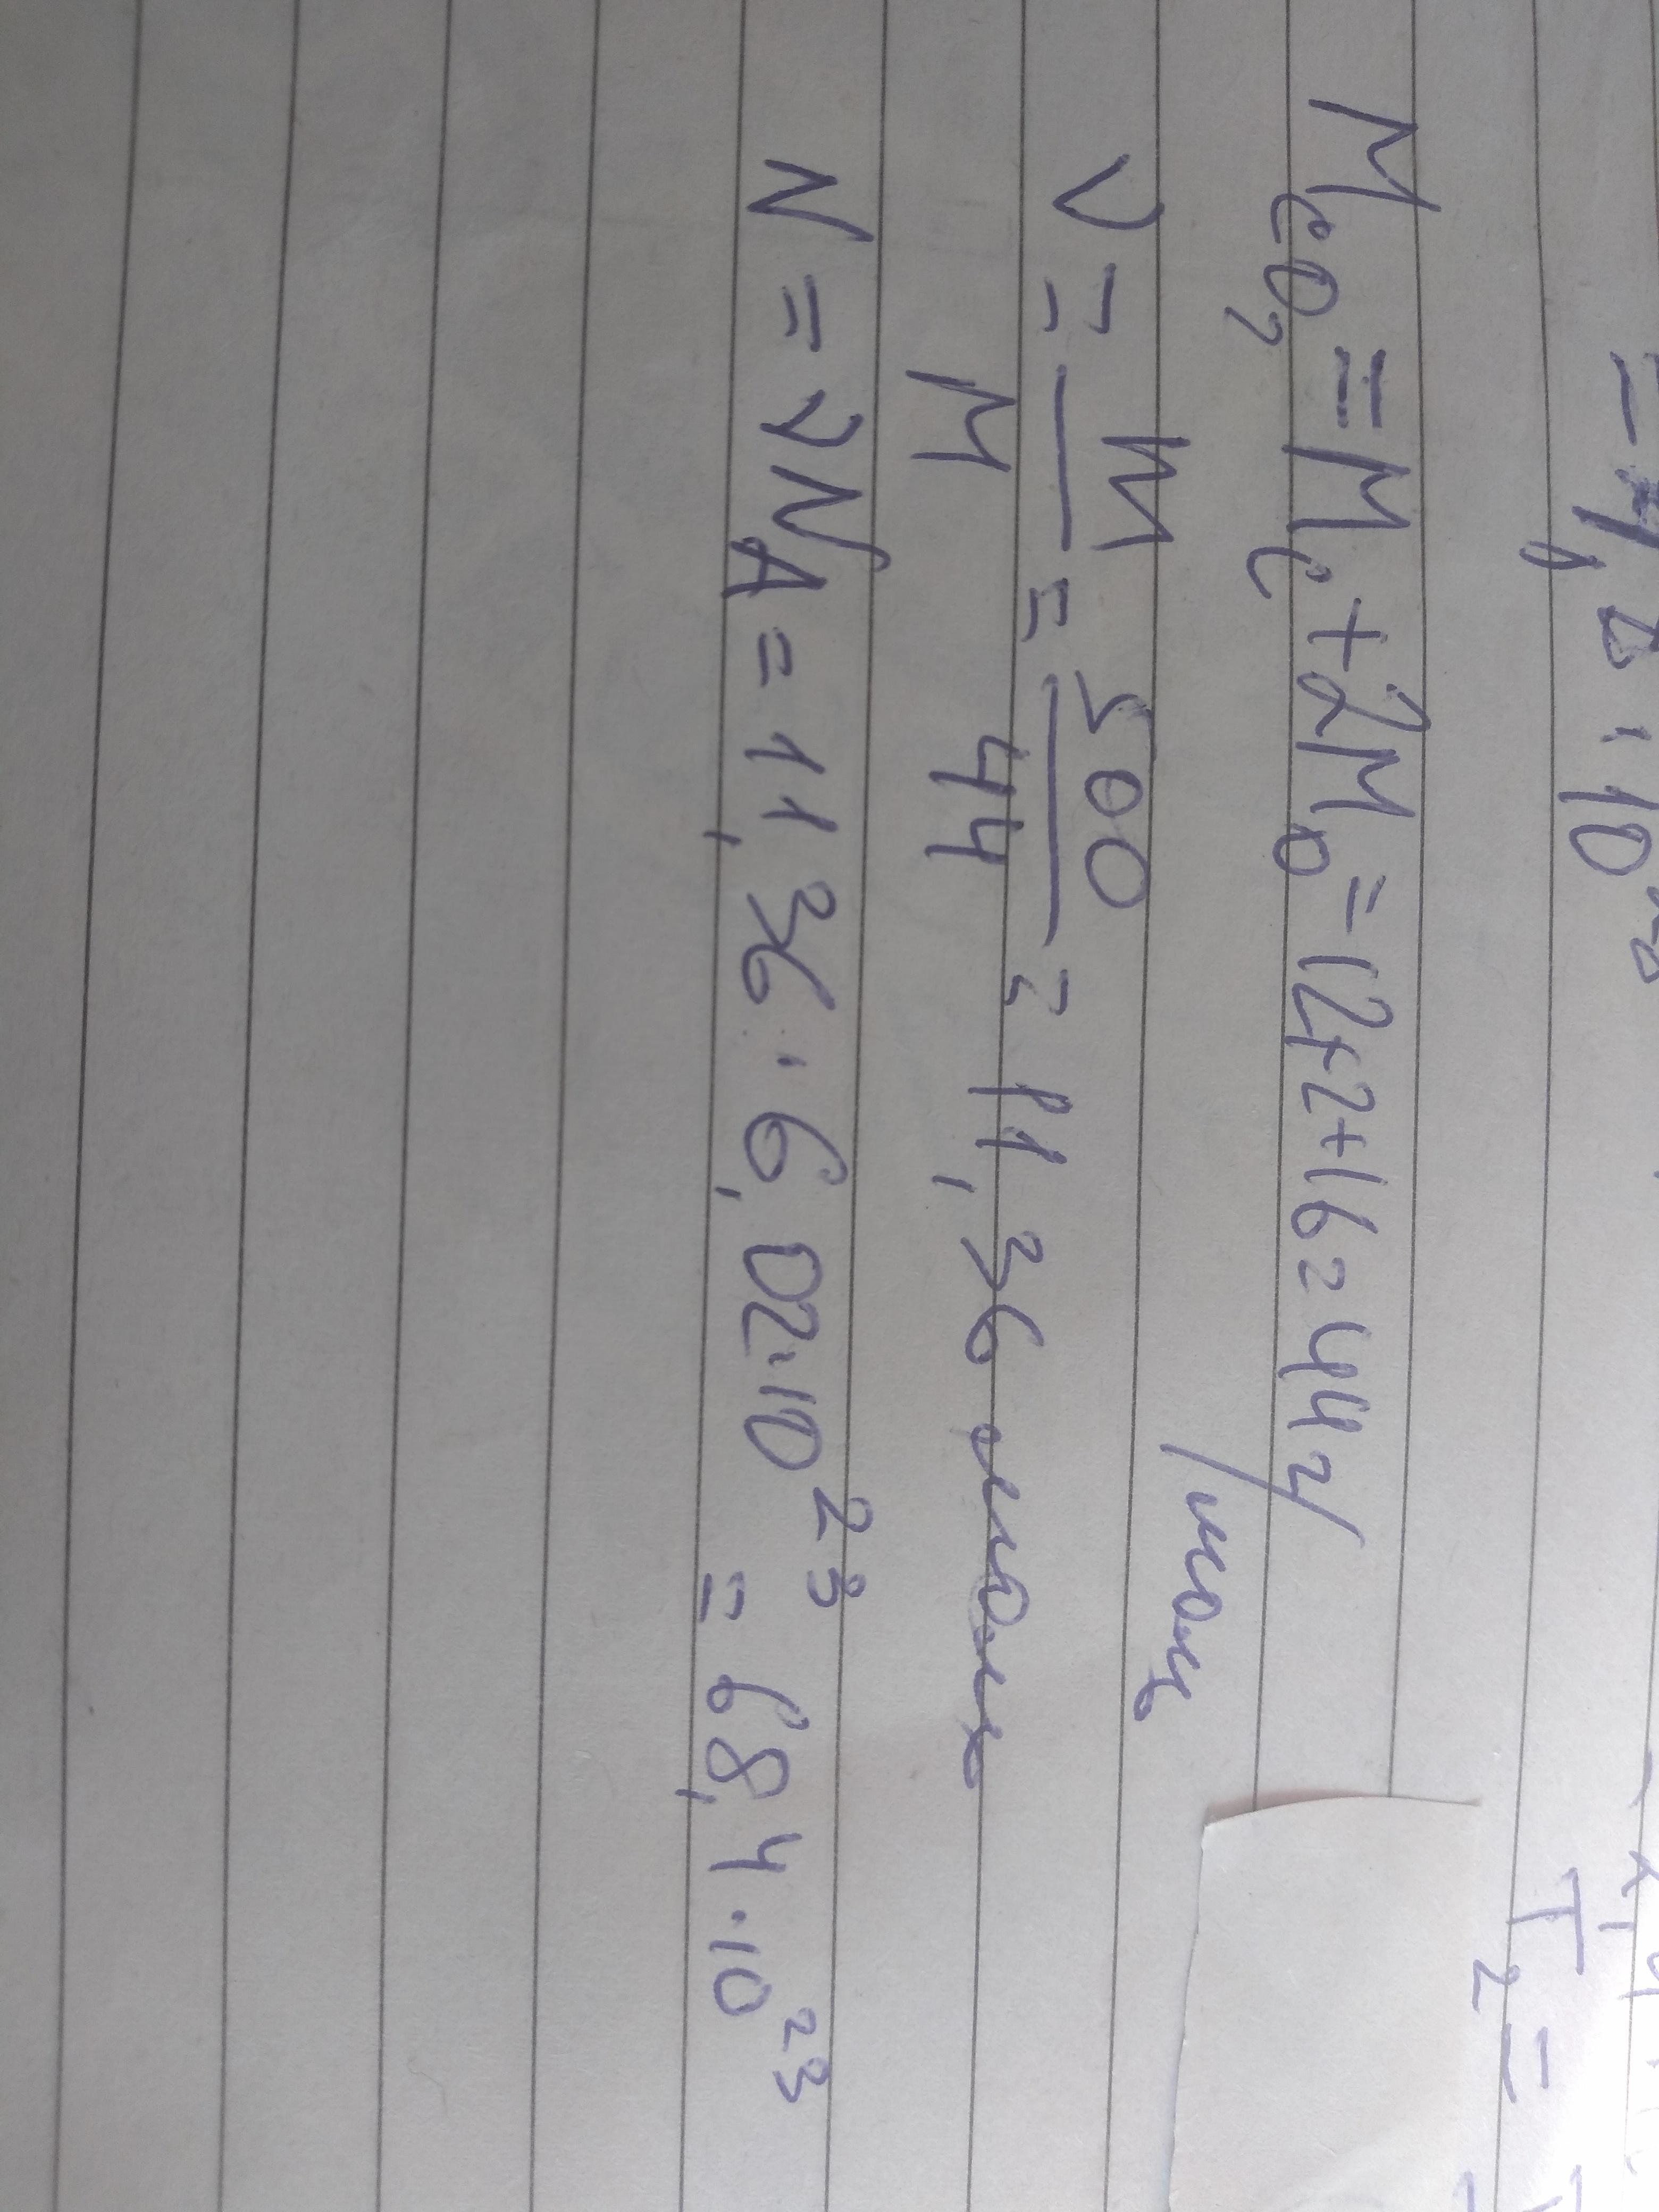 = 4,8 · 10
T₂ =
M_CO₂ = M_C + 2M_O = 12+2+16 = 44 г/моль
ν = m/M = 500/44 = 11,36 моль
N = νN_A = 11,36 · 6,02·10²³ = 68,4·10²³